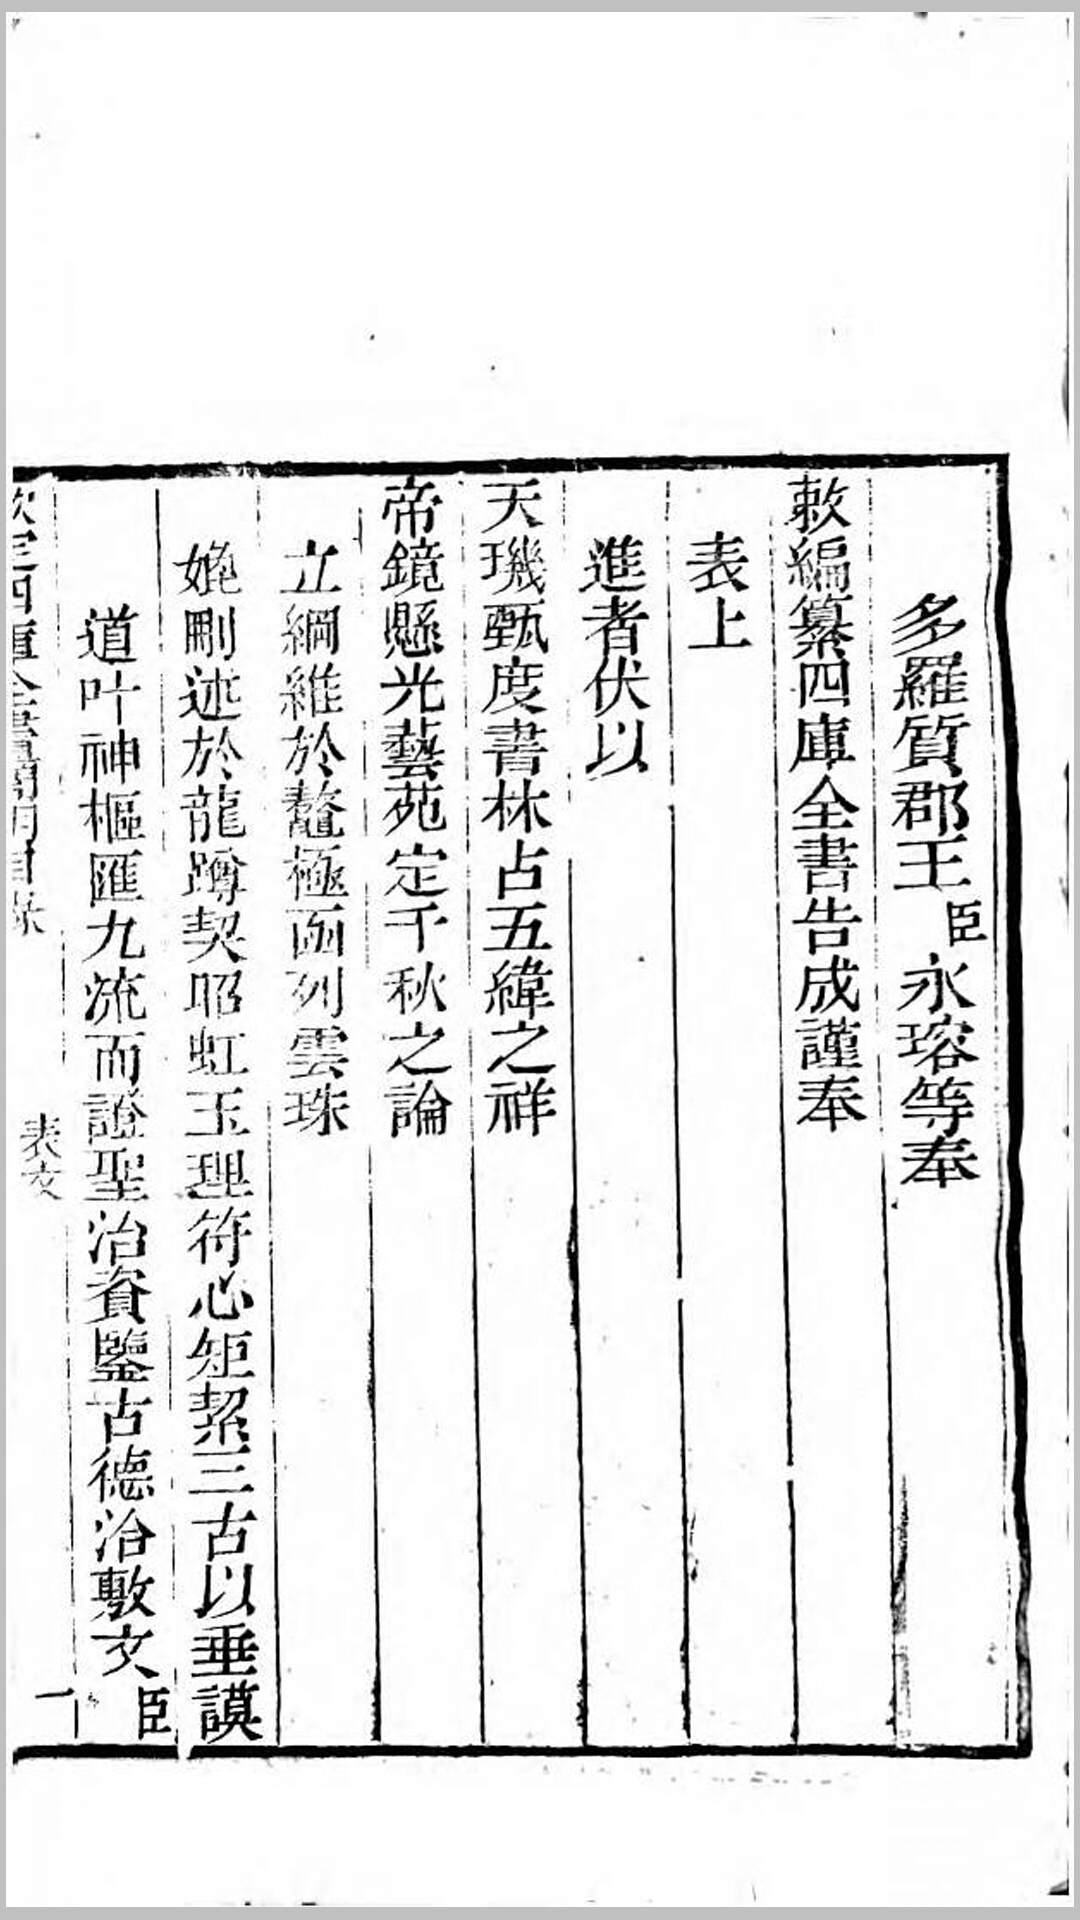 多羅質郡王臣永瑢等奉
敕編纂四庫全書告成謹奉
表上
進者伏以
天璣甄度書林占五緯之祥
帝鏡懸光藝苑定千秋之論
立綱維於鼇極函列雲珠
媲刪述於龍蹲契昭虹玉理符心矩絜三古以垂謨
道叶神樞匯九流而證聖治資鑒古德洽敷文臣
欽定四庫全書簡明目錄 表文 一